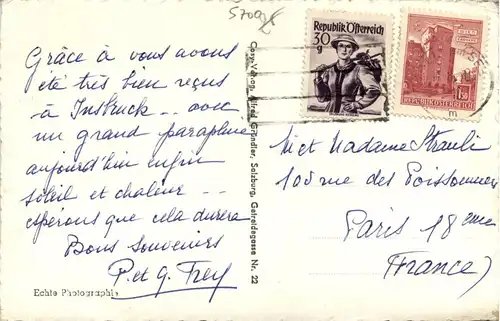 5709
Grâce à vous avons
été très bien reçus
à Insbruck -- avec
un grand parapluie
aujourd'hui enfin
soleil et chaleur --
espérons que cela durera
Bons souvenirs
P. et G. Frey
Echte Photographie
Cosy-Verlag, Alfred Gründler, Salzburg, Getreidegasse Nr. 22
Republik Österreich
30
g
WIEN
1.50
REPUBLIK ÖSTERREICH
M et Madame Strauli
105 rue des Poissonniers
Paris 18ème
(France)